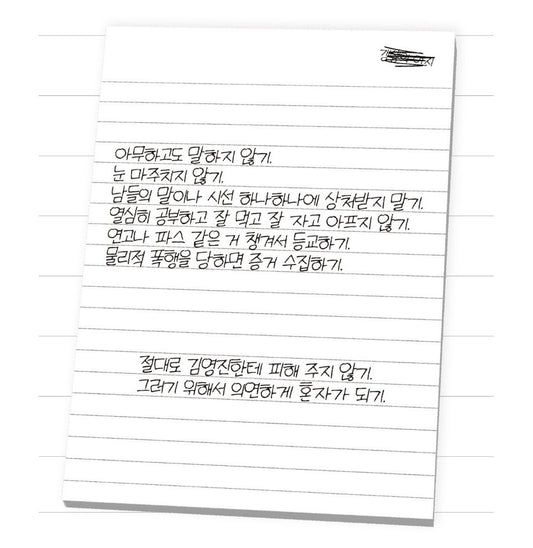 아무하고도 말하지 않기.
눈 마주치지 않기.
남들의 말이나 시선 하나하나에 상처받지 말기.
열심히 공부하고 잘 먹고 잘 자고 아프지 않기.
연고나 파스 같은 거 챙겨서 등교하기.
물리적 폭행을 당하면 증거 수집하기.
절대로 김영진한테 피해 주지 않기.
그러기 위해서 의연하게 혼자가 되기.